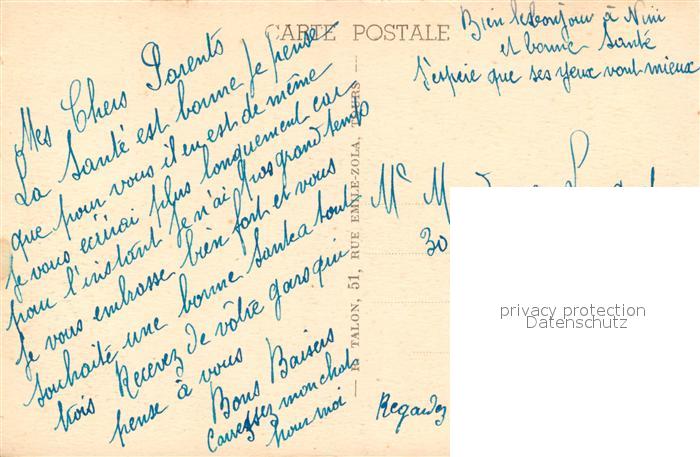 CARTE POSTALE
Bien le bonjour à Nini
et bonne Santé
J'espère que ses yeux vont mieux
Mes Chers Parents
La Santé est bonne je pense
que pour vous il en est de même
je vous écrirai plus longuement car
pour l'instant je n'ai pas grand temps
je vous embrasse bien fort et vous
souhaite une bonne Santé a tout
trois Recevez de vôtre gars qui
pense à vous
Bons Baisers
Caressez mon chat
pour moi
R. TALON, 51, RUE EMILE-ZOLA, TOURS
Mr M
30
Regardez
privacy protection
Datenschutz